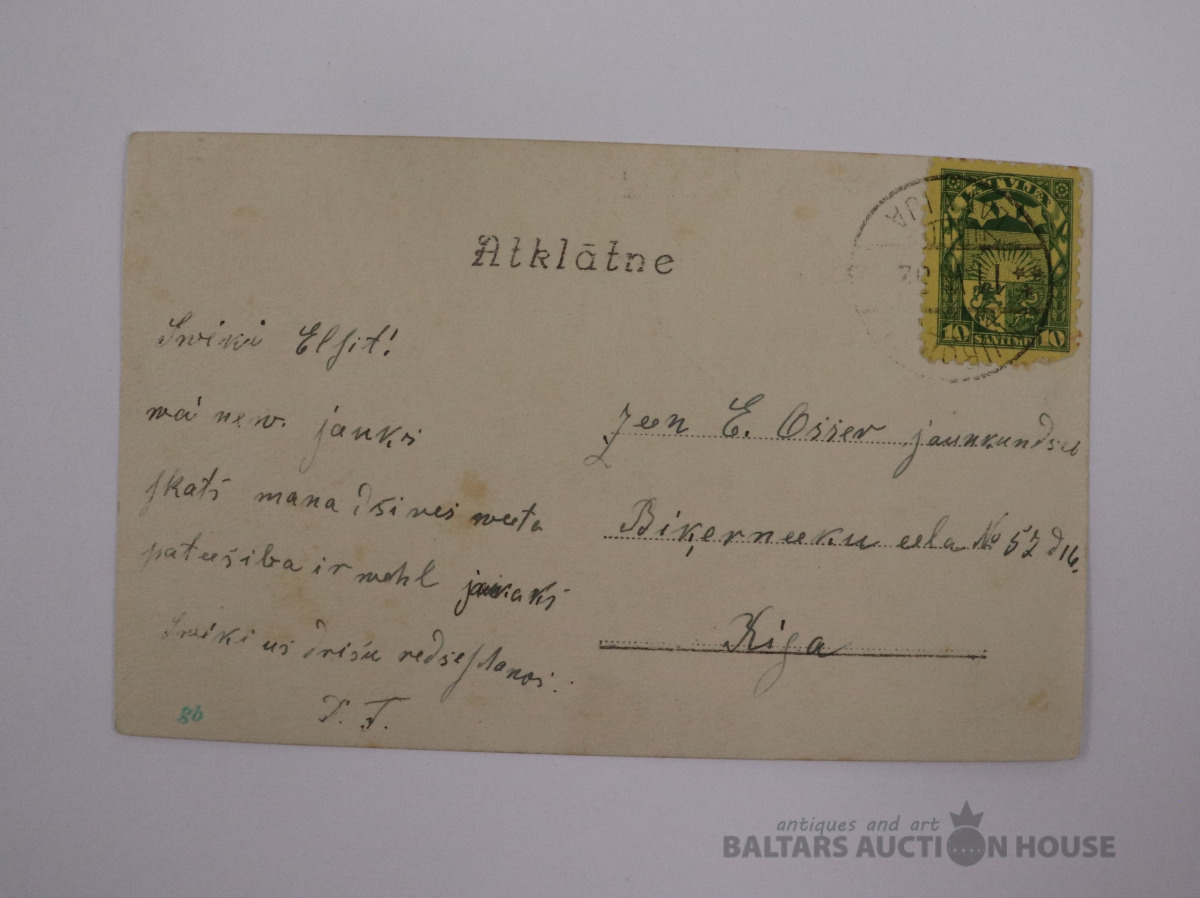 Atklātne
LATVIJA
10 SANTIMU 10
Sveiki Elsit!
wa' new. jauks
skats mana dsives weeta
pateesiba ir wehl jaukaks
Sveiki us drisu redseschanos.
T. F.
Jeen E. Osser jaunkundsei
Biķerneeku eela No 52 d 16.
Riga
gb
antiques and art
BALTARS AUCTION HOUSE